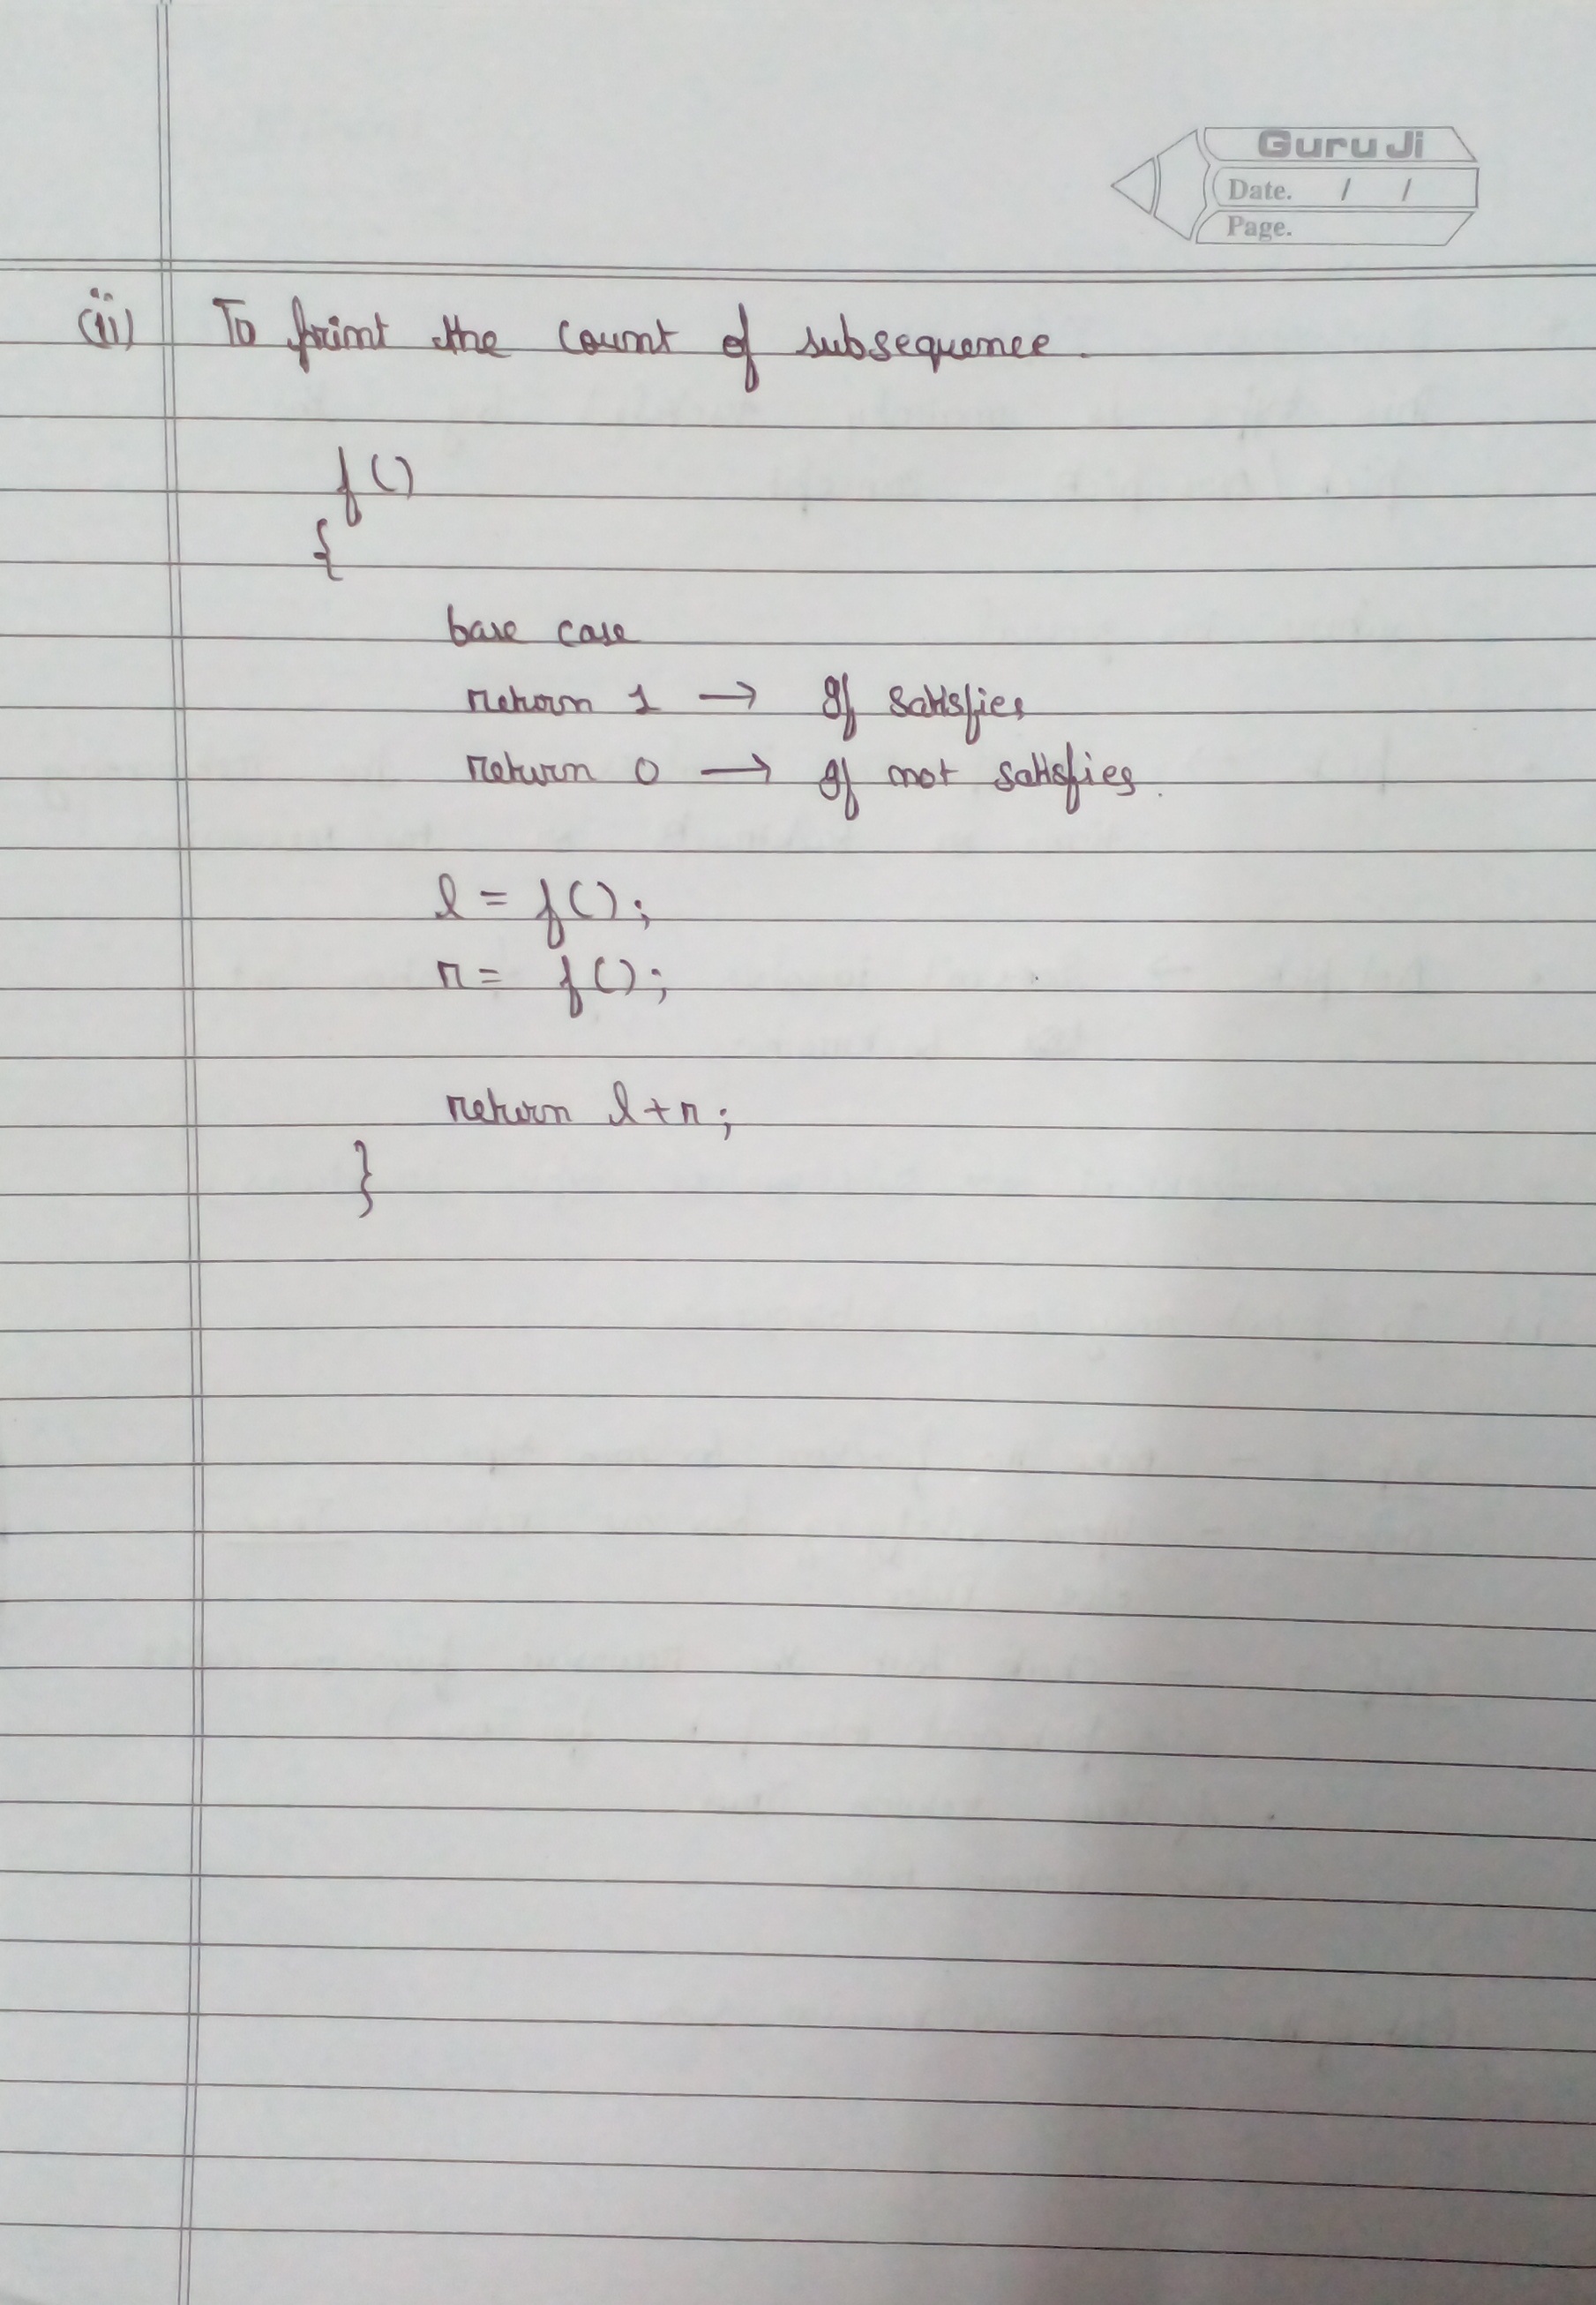 Guru Ji
Date. / /
Page.
(ii) To print the count of subsequence.
f()
{
base case
return 1 → If satisfies
return 0 → If not satisfies.
l = f();
r = f();
return l+r;
}